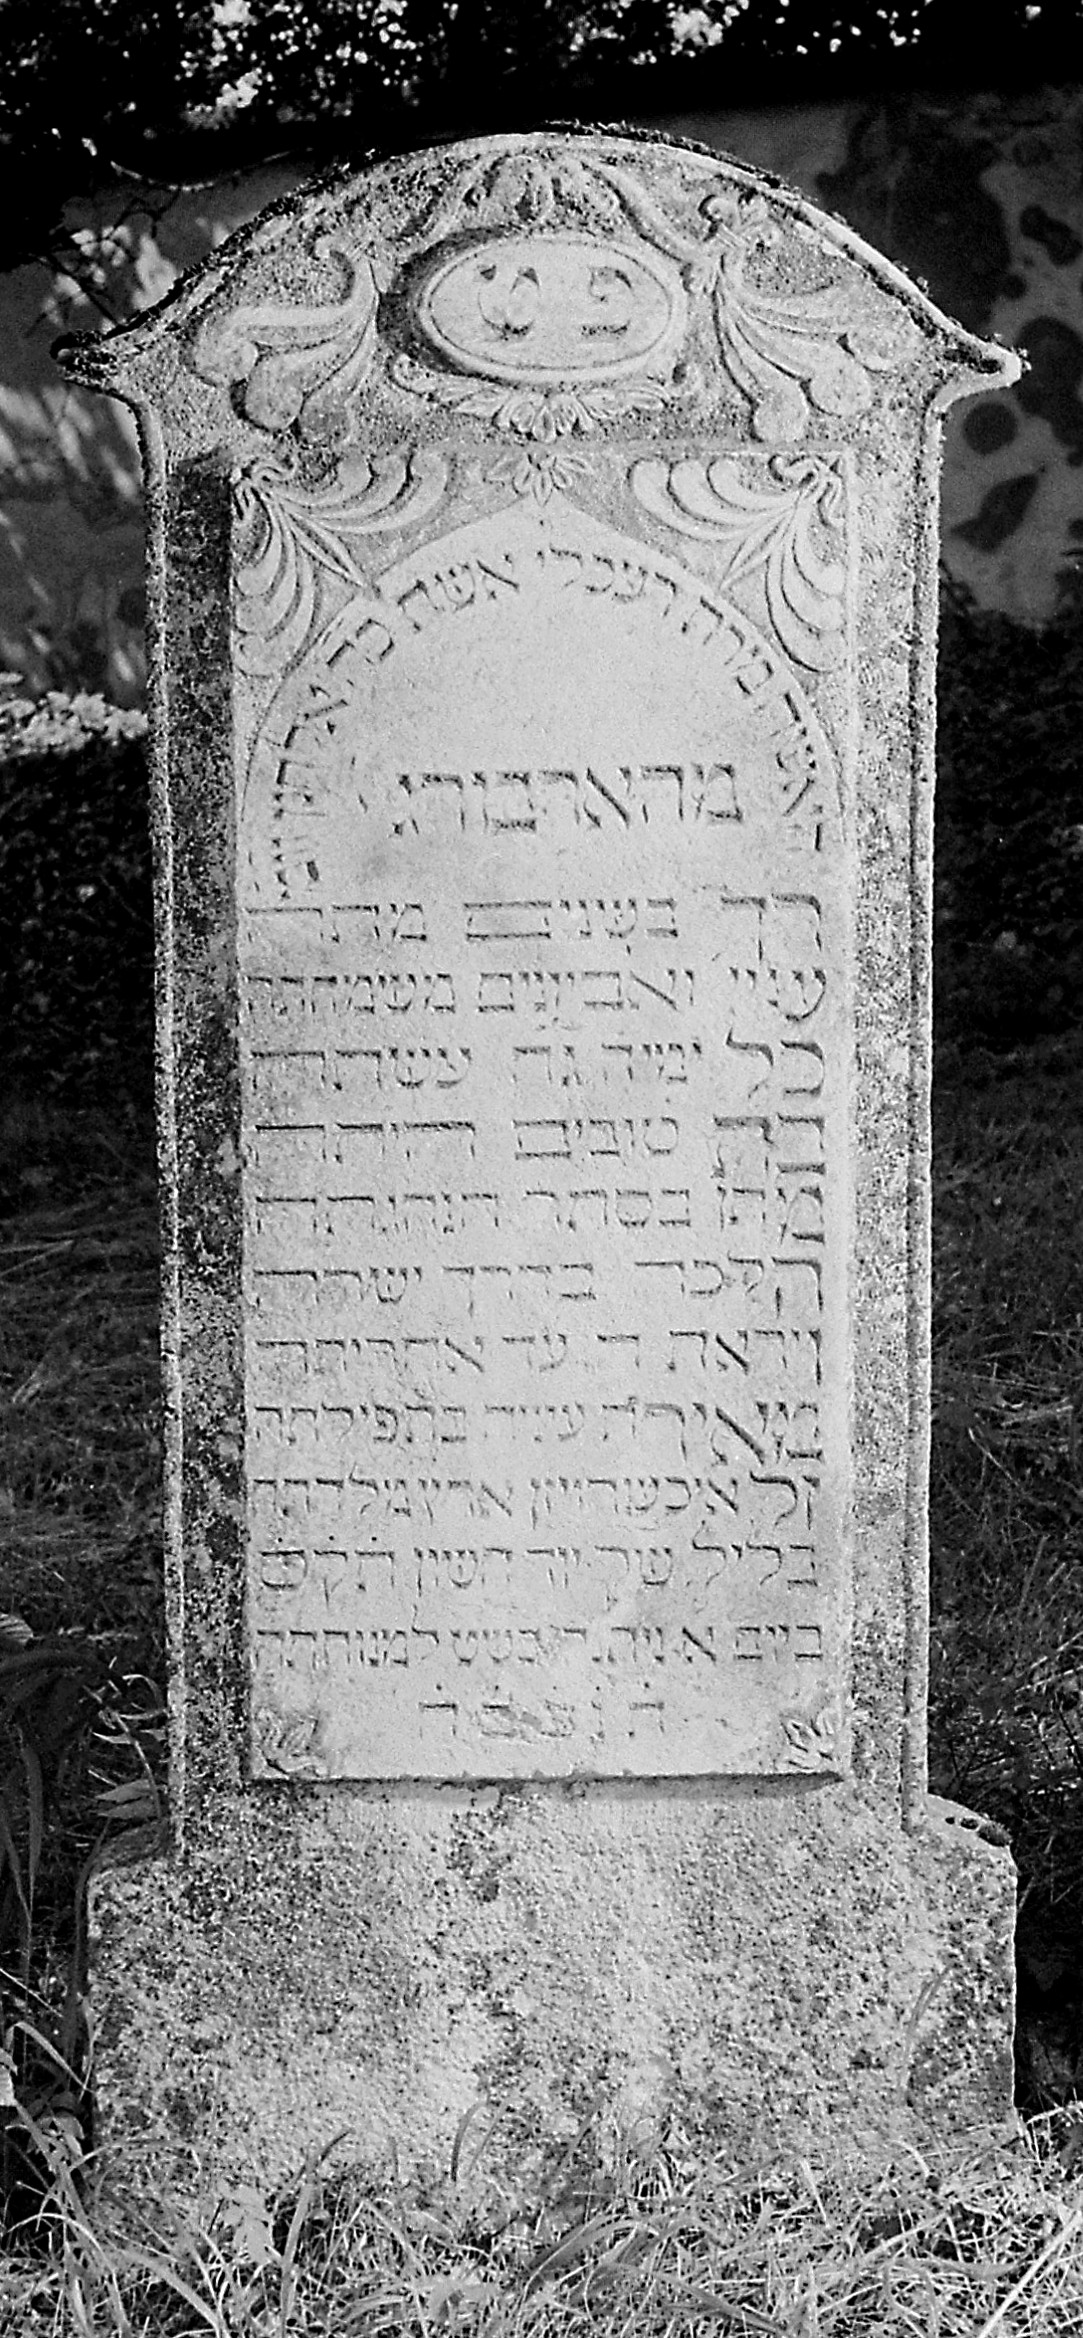 פ ט
האשה מירת רעכלי אשת כה אהרן
מהארבורג
רך בשנים מתה
עיני ואביונים משמחתה
כל ימיה גח עשתה
חה טובים היותה
מתן בסתר הנהגתה
הלכה בדרך ישרה
ויראת ה עד אחריתה
מאירה עיניה בתפילתה
קל איכשהיין ארץ מולדתה
בליל שק יוד חשון תקס
ביום א ניתנה בשט למנוחתה
ת נ צ ב ה